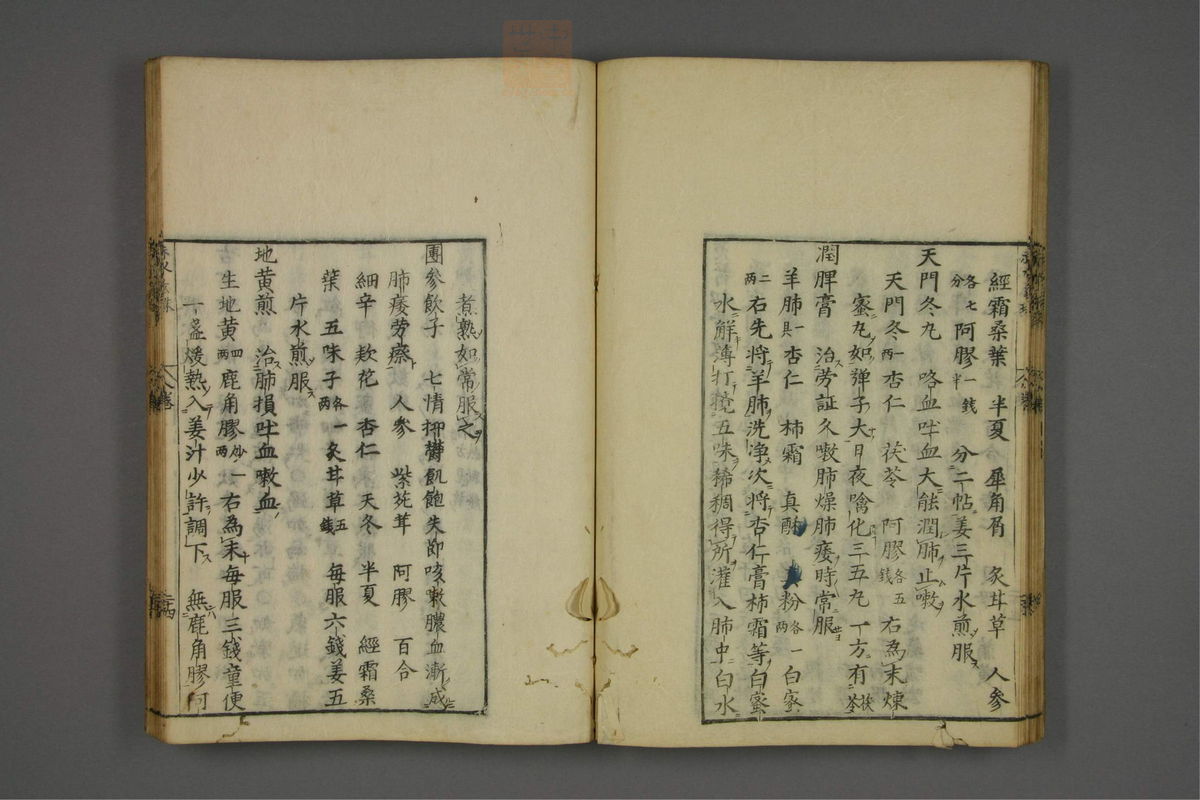 經霜桑葉 半夏 犀角屑 炙甘草 人參
各七分 阿膠一錢半 分二帖姜三片水煎服
天門冬丸 咯血吐血大能潤肺止嗽
天門冬一兩 杏仁 茯苓 阿膠各五錢 右為末煉
蜜丸如弾子大日夜噙化三五丸 一方有茯苓
潤脾膏 治劳証久嗽肺燥肺痿時常服
羊肺一具 杏仁 柿霜 真酥 粉各一兩 白宻
二兩 右先將羊肺洗净次將杏仁膏柿霜等白蜜
水解薄打攪五味稀稠得所灌入肺中白水
煮熟如常服之
團參飲子 七情抑欝飢飽失節咳嗽膿血漸成
肺痿劳瘵 人參 紫菀茸 阿膠 百合
細辛 欵花 杏仁 天冬 半夏 經霜桑
葉 五味子各一兩 炙甘草五錢 每服六錢姜五
片水煎服
地黄煎 治肺損吐血嗽血
生地黄四兩 鹿角膠炒一兩 右為末每服三錢童便
一盞煖熱入姜汁少許調下 無鹿角膠阿